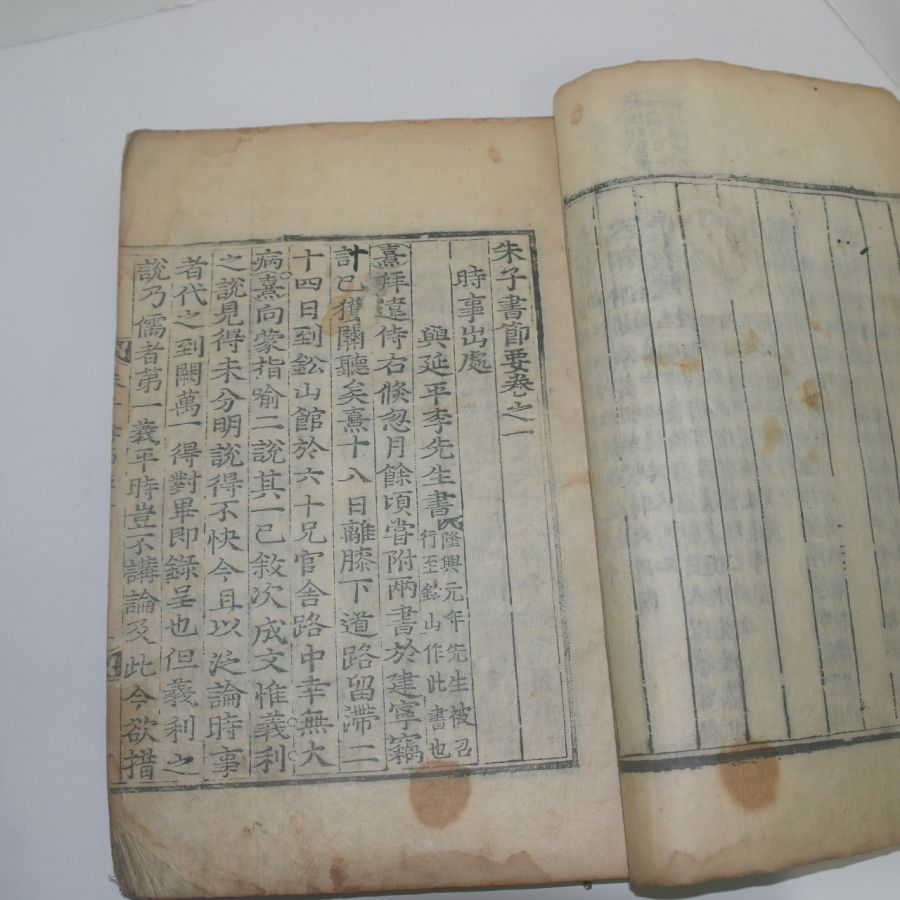 朱子書節要卷之一
時事出處
與延平李先生書 隆興元年先生被召行至鉛山作此書也
熹拜違侍右倏忽月餘頃嘗附兩書於建寧竊
計已獲關聽矣熹十八日離膝下道路留滯二
十四日到鈆山館於六十兄官舍路中幸無大
病熹向蒙指喻二說其一已敘次成文惟義利
之說見得未分明說得不快今且以泛論時事
者代之到闕萬一得對畢即錄呈也但義利之
說乃儒者第一義平時豈不講論及此今欲措